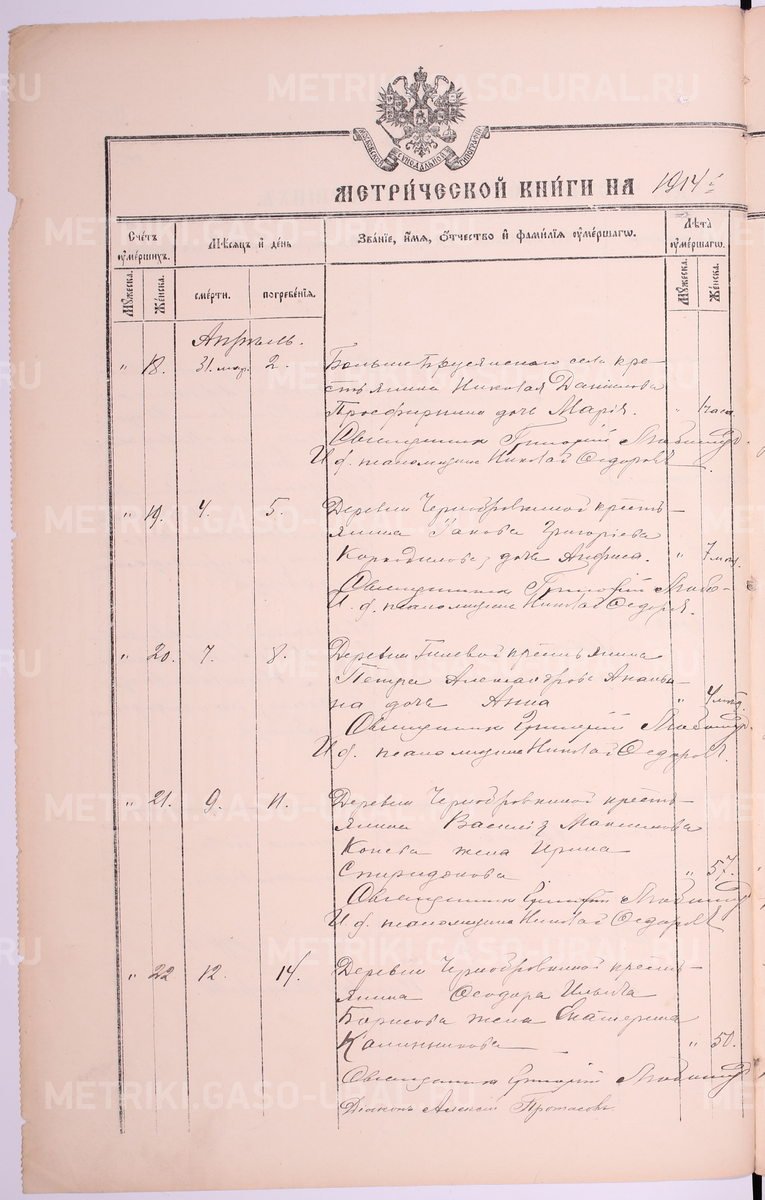 МЕТРИ́ЧЕСКОЙ КНИ́ГИ НА 1914 г.
Сче́тъ ѹ҆ме́ршихъ.
Мѣ́сяцъ и҆ де́нь
Зва́нїе, и҆́мѧ, ѻ҆́тчество и҆ фами́лїѧ ѹ҆ме́ршагѡ.
Лѣ́та ѹ҆ме́ршагѡ.
Мꙋ́жеска.
Же́нска.
сме́рти.
погребе́нїѧ.
Мꙋ́жеска.
Же́нска.
Апрѣль.
" 18. 31. мар. 2. села кре-
стьянина Николая Данилова
Просфирнина дочь Марія. " часа
Священникъ Григорій
И. д. псаломщика Николай Ѳедоровъ.
" 19. 4. 5. Деревни Чернобровкиной кресть-
янина Іакова Григоріева
Коркодилова, дочь Анфиса. " 7 мѣс.
Священникъ Григорій
И. д. псаломщика Николай Ѳедоровъ.
" 20. 7. 8. Деревни Гилевой крестьянина
Петра Александрова Ананьи-
на дочь Анна " 4 мѣс.
Священникъ Григорій
И. д. псаломщика Николай Ѳедоровъ.
" 21. 9. 11. Деревни Чернобровкиной кресть-
янина Василія Максимова
Конева жена Ирина
Спиридонова " 57.
Священникъ Григорій
И. д. псаломщика Николай Ѳедоровъ
" 22 12. 14. Деревни Чернобровкиной кресть-
янина Ѳеодора Ильича
Борисова жена Екатерина
Калинникова " 50.
Священникъ Григорій
Діаконъ Алексій Протасовъ
METRIKI.GASO-URAL.RU